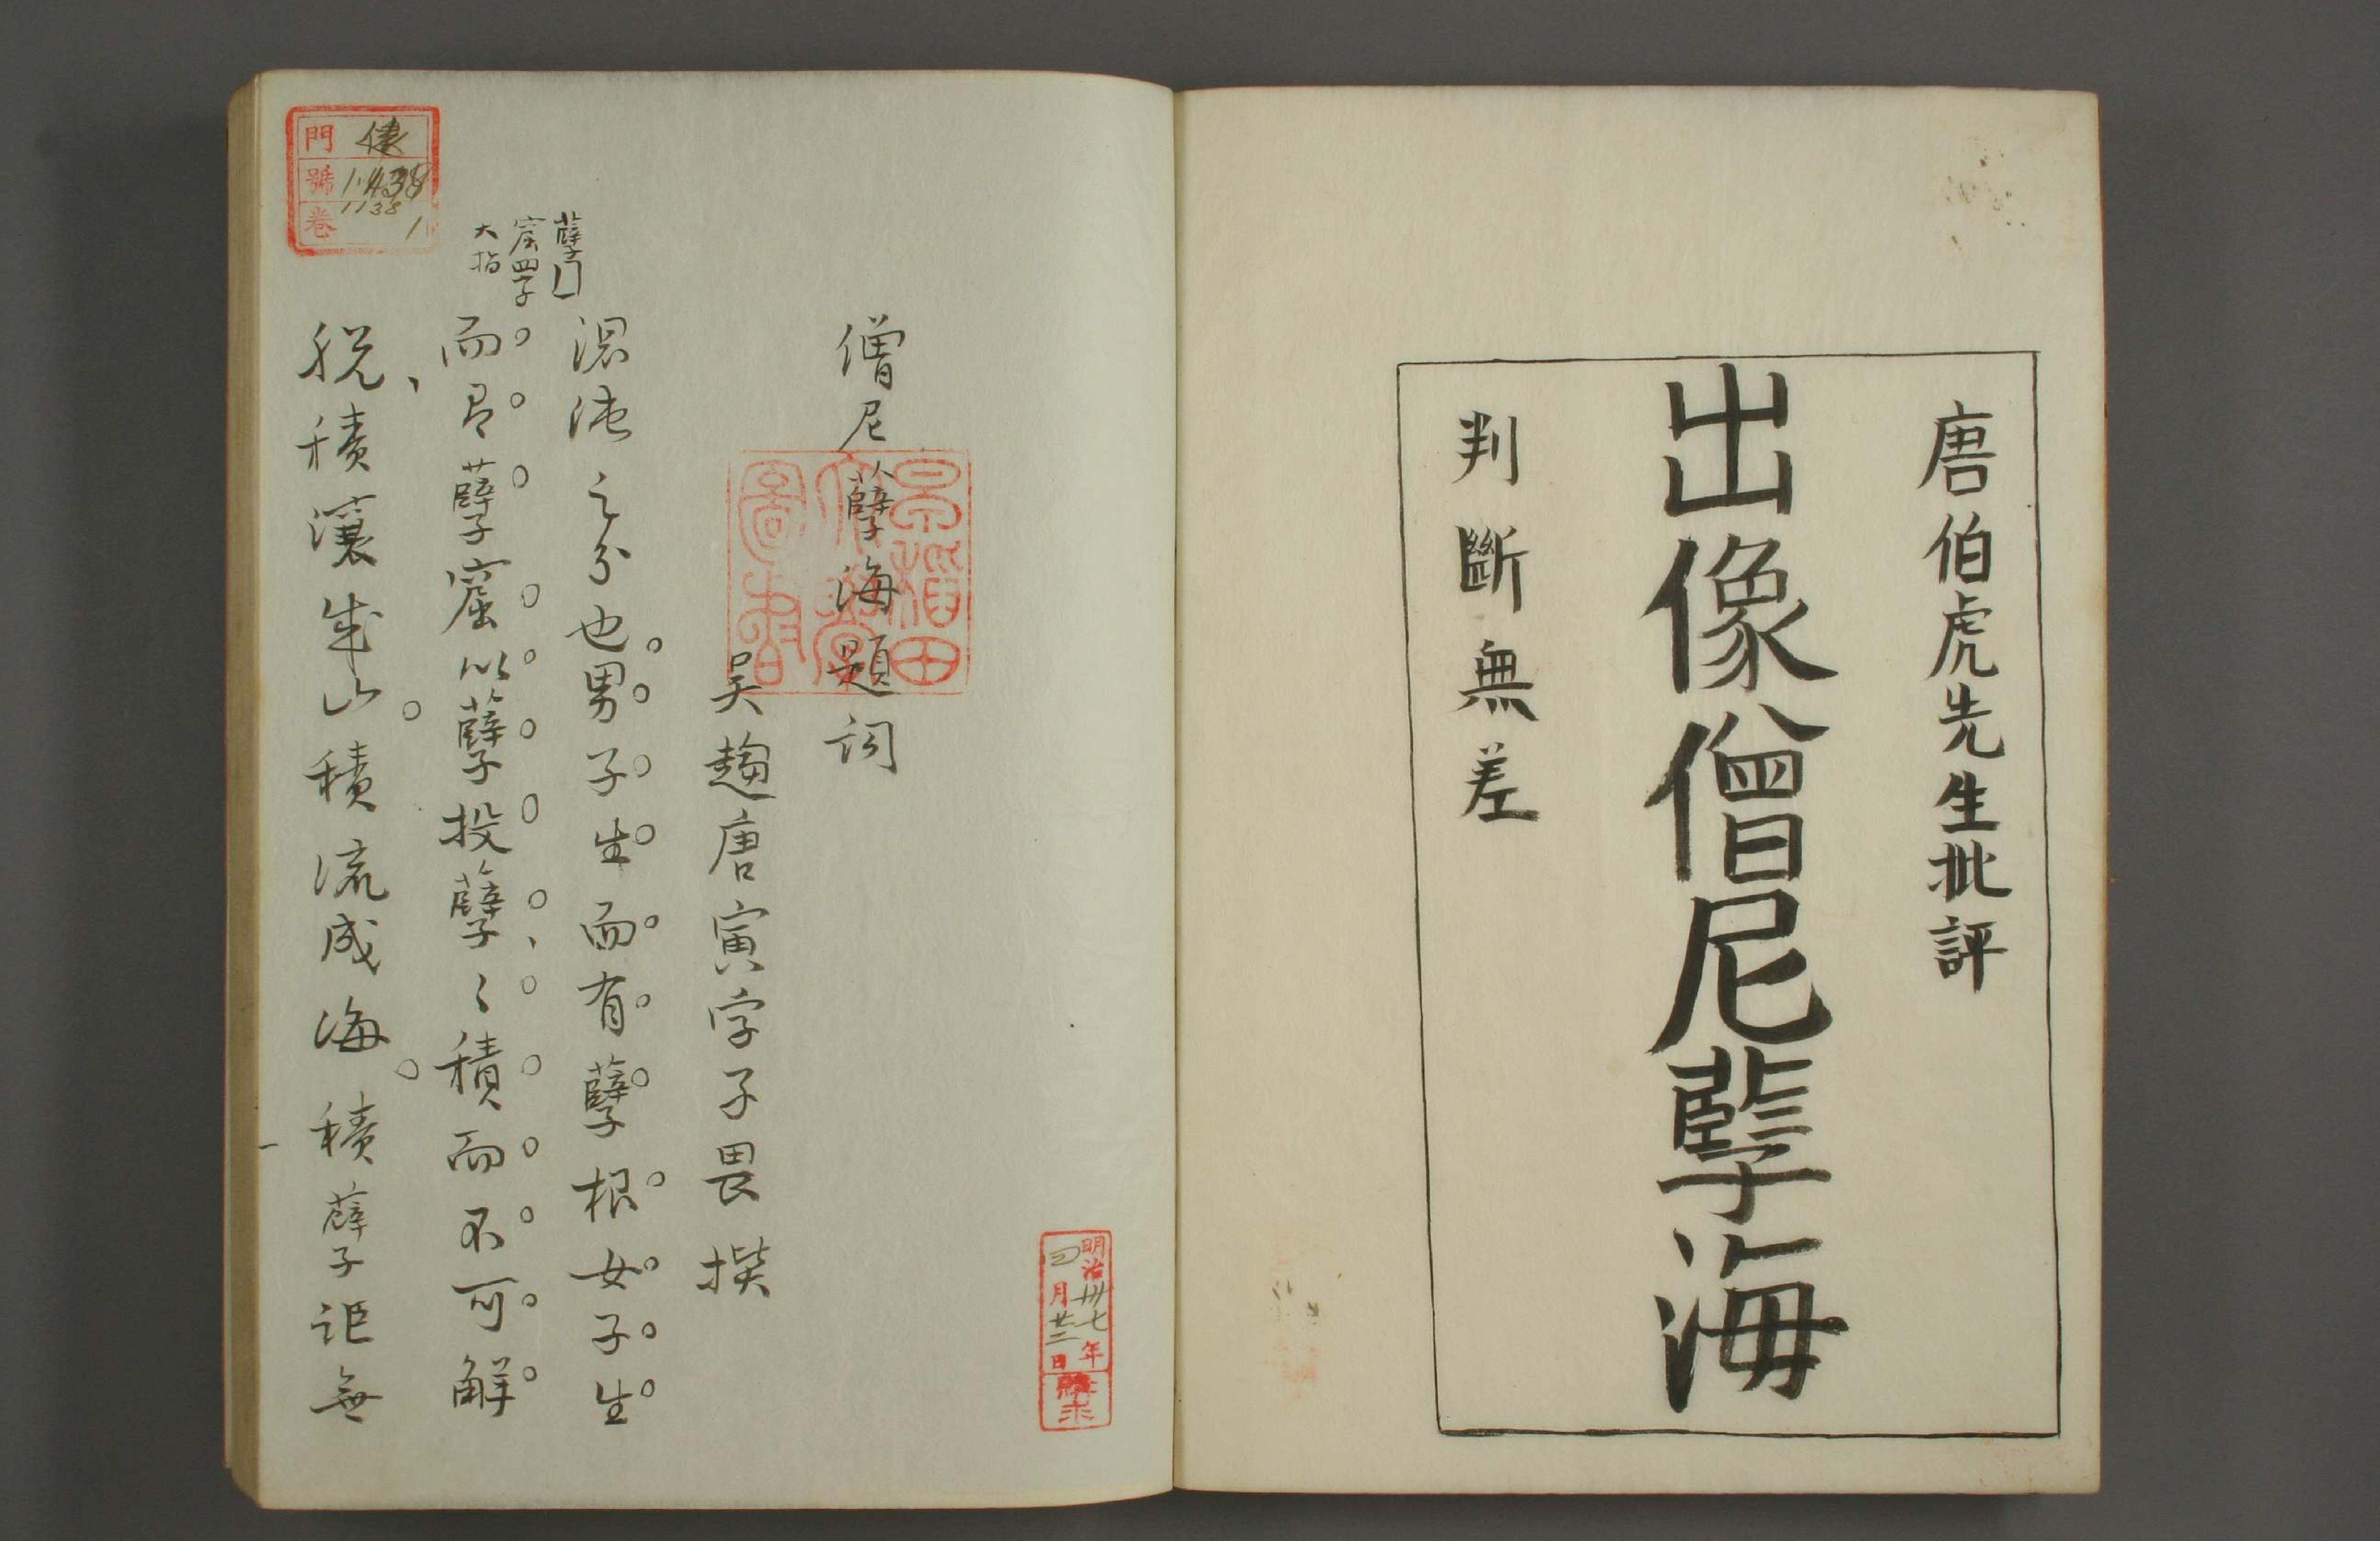 唐伯虎先生批評
出像僧尼孽海
判斷無差
僧尼孽海題詞
吳趨唐寅字子畏撰
混沌之分也男子生而有孽根女子生
而具孽窟以孽投孽〻積而不可解
脱積瀼成山積流成海積孽子詎無
孽
窟四字
大指
門
號 1438
1138
卷 1
明治卅七年
四月廿二日
購求
早稻田
大學
圖書